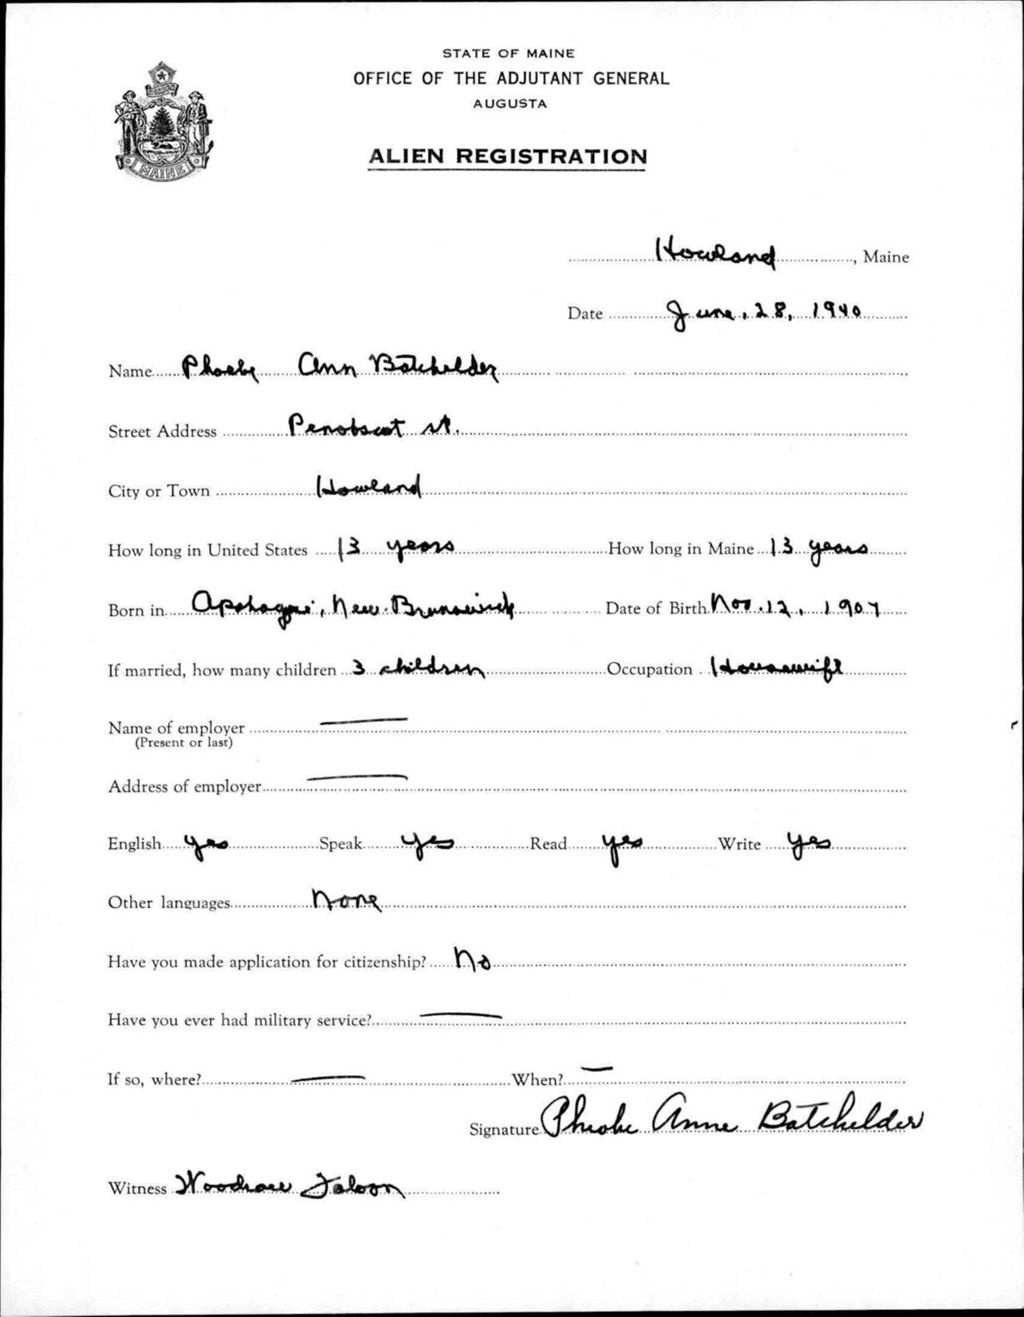 STATE OF MAINE
OFFICE OF THE ADJUTANT GENERAL
AUGUSTA
MAINE
ALIEN REGISTRATION
Howland, Maine
Date June, 28, 1940
Name Phoeby Ann Batchelder
Street Address Penobscot st.
City or Town Howland
How long in United States 13 years How long in Maine 13 years
Born in New Brunswick Date of Birth Nov. 12, 1907
If married, how many children 3 children Occupation Housewife
Name of employer
(Present or last)
Address of employer
English yes Speak yes Read yes Write yes
Other languages None
Have you made application for citizenship? No
Have you ever had military service?
If so, where? When?
Signature Phoebe Anne Batchelder
Witness